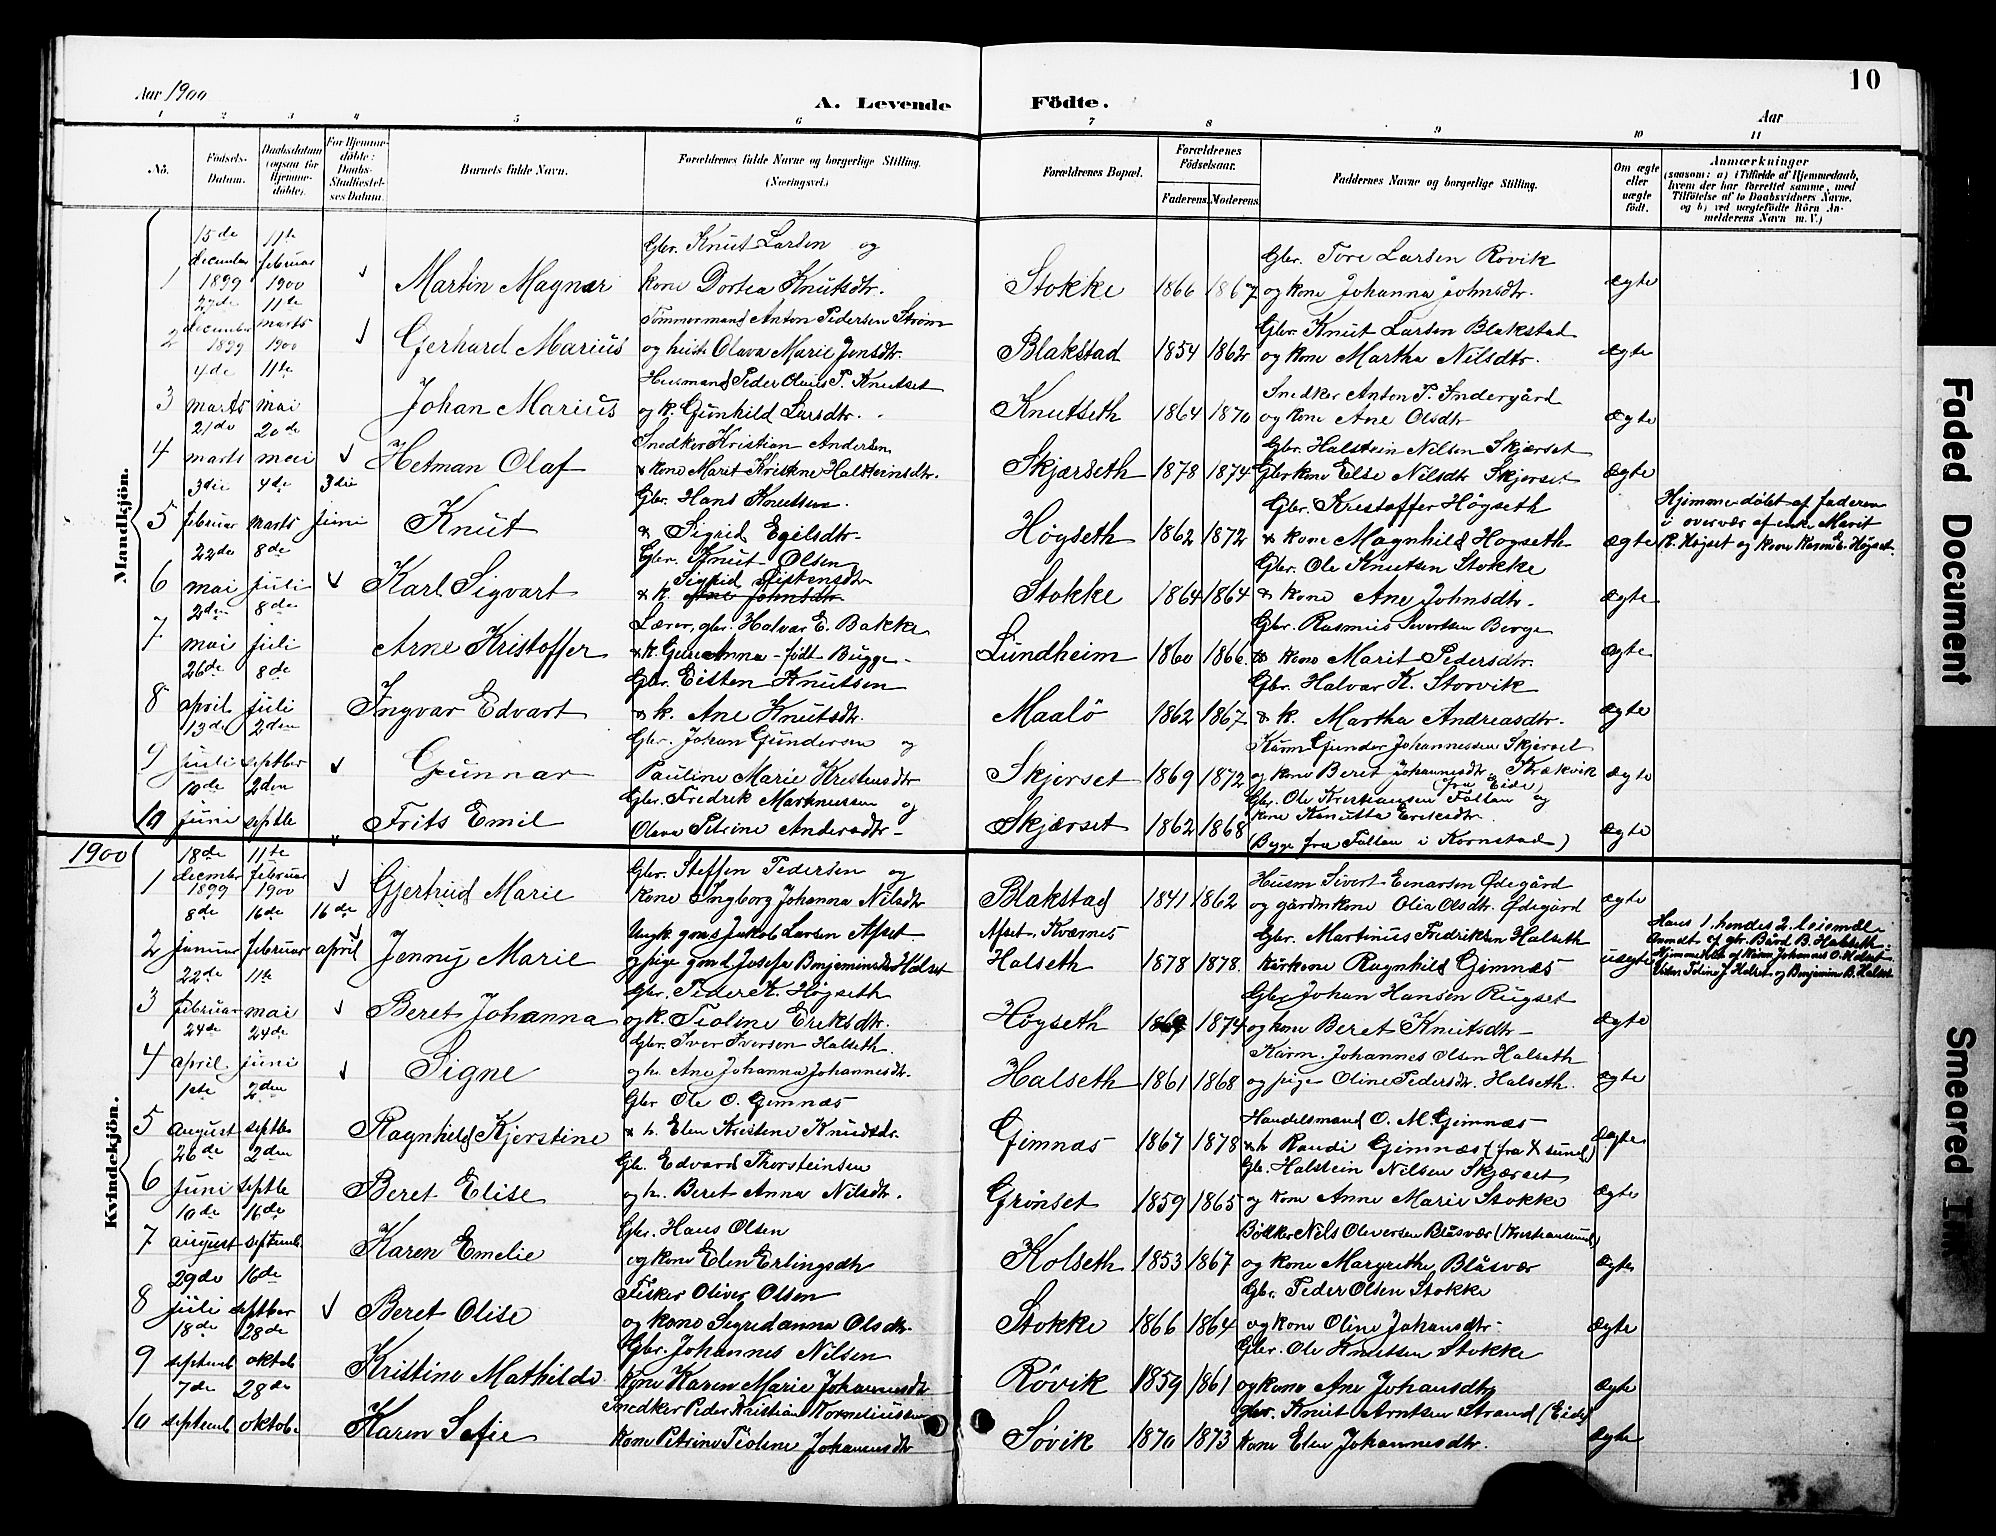 Aar 1900
A. Levende Födte.
10
Aar
1 2 3 4 5 6 7 8 9 10 11
No.
Födsels-Datum.
Daabsdatum (ogsaa for Hjemmedöbte).
For Hjemmedöbte: Daabs-Stadfæstelses Datum.
Barnets fulde Navn.
Forældrenes fulde Navne og borgerlige Stilling. (Næringsvei.)
Forældrenes Bopæl.
Forældrenes Födselsaar.
Faderens Moderens
Faddernes Navne og borgerlige Stilling.
Om ægte eller uægte födt.
Anmærkninger (saasom: a) i Tilfælde af Hjemmedaab, hvem der har forrettet samme, med Tilföielse af to Daabsvidners Navne, og b) ved uægtefödte Börn Anmelderens Navn m. V.)
Mandkjön.
1 15de december 1899 11te februar 1900 Martin Magnar Gbr. Knut Larsen og kone Dortea Knutsdtr. Stokke 1866 1867 Gbr. Tore Larsen Rövik og kone Johanna Johnsdtr. ægte
2 27de december 1899 11te marts 1900 Gerhard Marius Tömmermand Anton Pedersen Ström og hust. Olava Marie Jonsdtr. Blakstad 1854 1862 Gbr. Knut Larsen Blakstad og kone Martha Nilsdtr. ægte
3 4de marts 11te mai Johan Marius Husmand Peder Olaus P. Knutset og k. Gunhild Larsdtr. Knutseth 1864 1870 Snedker Anton P. Indergård og kone Ane Olsdtr ægte
4 21de marts 20de mai Herman Olaf Snedker Kristian Andersen & kone Marit Kristine Halsteinsdtr. Skjærseth 1878 1874 Gbr. Halstein Nilsen Skjærset Gbrkone Else Nilsdtr Skjerset ægte
5 3die februar 4de marts 3die juni Knut Gbr. Hans Knutsen & Sigrid Egilsdtr. Höyseth 1862 1872 Gbr. Kristoffer Höyseth & kone Magnhild Hogseth ægte Hjemmedöbt af faderen i overvær af enke Marit R. Höjset og kone Rasm. E. Höjset.
6 22de mai 8de juli Karl Sigvart Gbr. Knut Olsen & k. Sigrid Eistensdtr Ane Johnsdtr Stokke 1864 1864 Gbr. Ole Knutsen Stokke & kone Ane Johnsdtr. ægte
7 2den mai 8de juli Arne Kristoffer Lærer, gbr. Halvar E. Bakke & k. Gurianna - födt Bugge - Lundheim 1860 1866 Gbr. Rasmus Sivertsen Berge & kone Marit Pedersdtr. ægte
8 26de april 8de juli Ingvar Edvart Gbr. Eisten Knutsen & k. Ane Knutsdtr. Maalö 1862 1867 Gbr. Halvar K. Storvik & k. Martha Andreasdtr. ægte
9 13de juli 2den septbr Gunnar Gbr. Johan Gundersen og Pauline Marie Kristensdtr Skjerset 1869 1872 Kårm Gunder Johannessen Skjerset og kone Beret Johannesdtr Krakvik fra Eide) ægte
10 10de juni 2den septbr Frits Emil Gbr. Fredrik Martinussen og Olava Petrine Andersdtr. Skjærset 1862 1868 Gbr. Ole Kristiansen Foltan og kone Knutta Eriksdtr. (Bygge fra Foltan i Kornstad) ægte
1900
Kvindekjön.
1 18de december 1899 11te februar 1900 Gjertrud Marie Gbr. Steffen Pedersen og kone Ingborg Johanna Nilsdtr Blakstad 1841 1862 Husm Sivert Einarsen Ödegård og gårdmkone Olia Olsdtr. Ödegård ægte
2 8de januar 16de februar 16de april Jenny Marie Ungk. gmd Jakob Larsen Afset og pige gmd. Josefa Benjaminsdtr Halset Afset. Kværnes Halseth 1878 1878 Gbr. Martinus Fredriksen Halseth Kårkone Ragnhild Gimnæs uægte Hans 1. hendes 2. leiemål. Anmdt af gbr. Bård B. Halseth. Hjemmedöbt af Kårm Johannes O. Halset. Vidner Toline J Halset og Benjamin B. Halset
3 22de februar 11te mai Beret Johanna Gbr. Peder K. Höyseth og k. Tioline Eriksdtr. Höyseth 1869 1874 Gbr Johan Hansen Rugset og kone Beret Knutsdtr ægte
4 24de april 24de juni Signe Gbr. Iver Iversen Halseth. og h. Ane Johanna Johannesdtr. Halseth 1861 1868 Kårm. Johannes Olsen Halseth og pige Oline Pedersdtr. Halseth. ægte
5 1ste august 2den septbr Ragnhild Kjerstine Gbr Ole O. Gimnæs & h. Elen Kristine Knudtsdr. Gimnæs 1867 1878 Handelsmand O. M. Gimnæs & h Randi Gimnæs (fra Xsund) ægte
6 26de juni 2den septbr Beret Elise Gbr. Edvard Thorsteinsen og h. Beret Anna Nilsdtr. Grönset 1859 1865 Gbr. Halstein Nilsen Skjærset og kone Anne Marie Stokke ægte
7 10de august 16de septemb. Karen Emelie Gbr. Hans Olsen og kone Elen Erlingsdtr Kolseth 1853 1867 Bödker Nils Oliversen Blåsvær (Kristiansund) og kone Margrethe Blåsvær ægte
8 29de juli 16de septbr Beret Olise Fisker Oliver Olsen og kone Segredanna Olsdtr. Stokke 1866 1864 Gbr. Peder Olsen Stokke og kone Oline Johansdtr. ægte
9 18de septemb 28de oktob Kristine Mathilde Gbr. Johannes Nilsen Kone Karen Marie Johannesdtr Rövik 1859 1861 Gbr. Ole Knutsen Stokke og kone Ane Johansdtr ægte
10 7de septemb 28de oktob. Karen Sofie Snedker Peder Kristian Korneliussen Kone Petrine Tioline Johannesdtr Sövik 1870 1873 Gbr. Knut Arntsen Strand (Eide) Kone Elen Johannesdtr. ægte
Faded Document
Smeared Ink